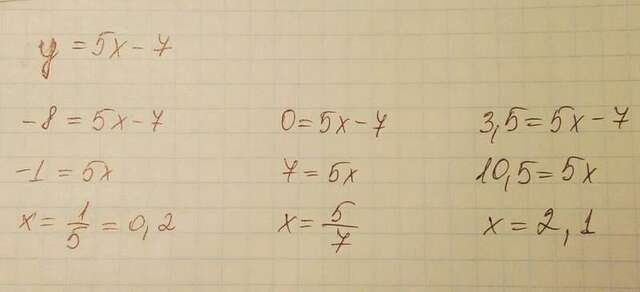 y = 5x - 7
-8 = 5x - 7
-1 = 5x
x = 1/5 = 0,2
0 = 5x - 7
7 = 5x
x = 5/7
3,5 = 5x - 7
10,5 = 5x
x = 2,1